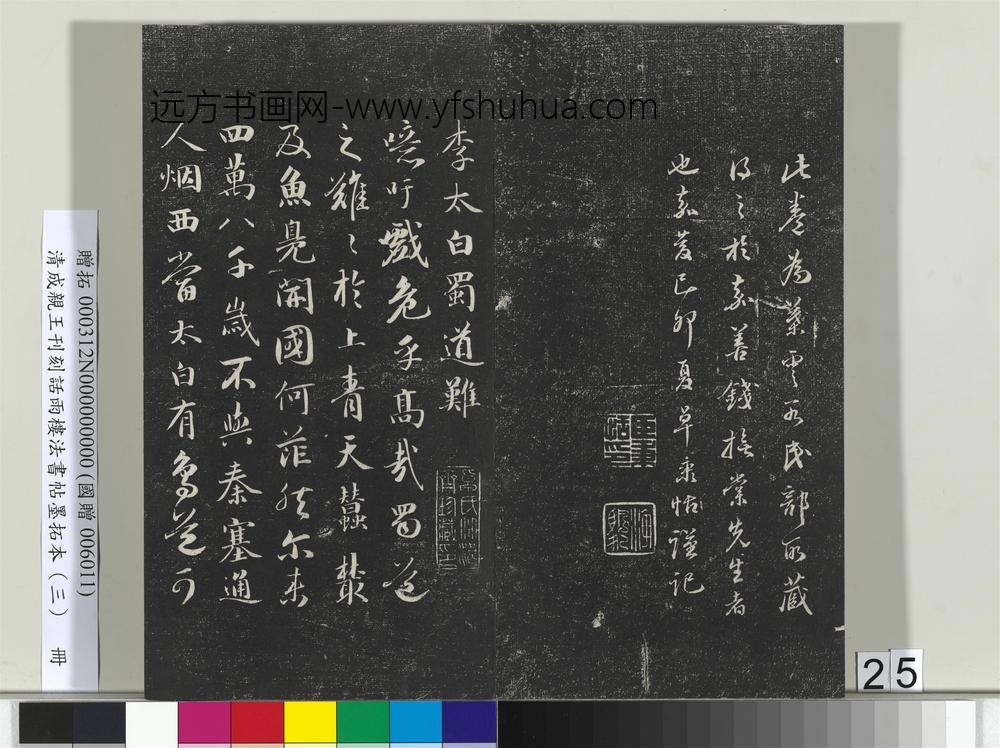 远方书画网-www.yfshuhua.com
此卷為葉雲谷民部所藏
得之於嘉善錢撫棠先生者
也嘉慶己卯夏卓秉恬謹記
李太白蜀道難
噫吁戲危乎髙哉蜀道
之難〻於上青天蠶叢
及魚鳧開國何茫然尔来
四萬八千歲不與秦塞通
人烟西當太白有鳥道可
贈拓 000312N000000000(國贈 006011)
清成親王刊刻話雨樓法書帖墨拓本(三) 冊
25